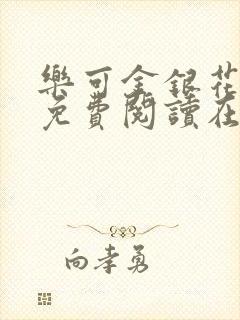 樂可金銀花
免費閱讀在
向孝勇